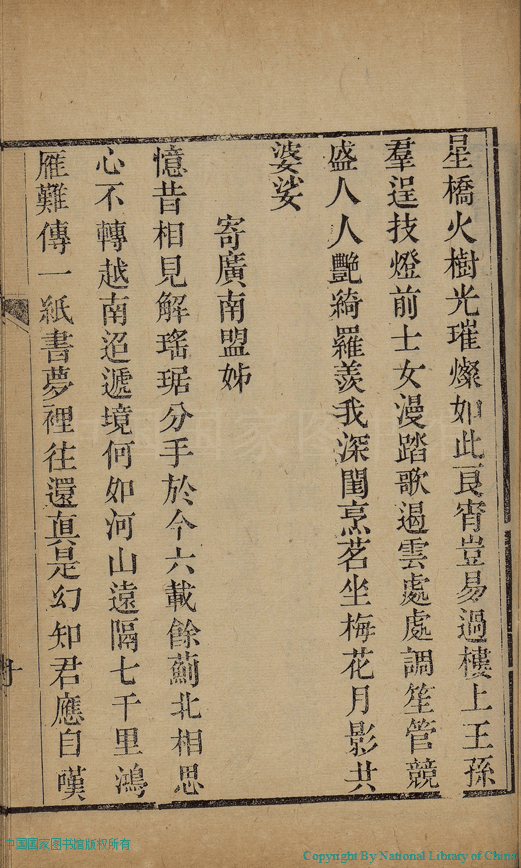 星橋火樹光璀燦如此良宵豈易過樓上王孫
羣逞技燈前士女漫踏歌遏雲處處調笙管競
盛人人艷綺羅羨我深閨烹茗坐梅花月影共
婆娑
寄廣南盟姊
憶昔相見解瑤琚分手於今六載餘薊北相思
心不轉越南迢遞境何如河山遠隔七千里鴻
雁難傳一紙書夢裡往還真是幻知君應自嘆
十
中国国家图书馆版权所有
Copyright By National Library of China